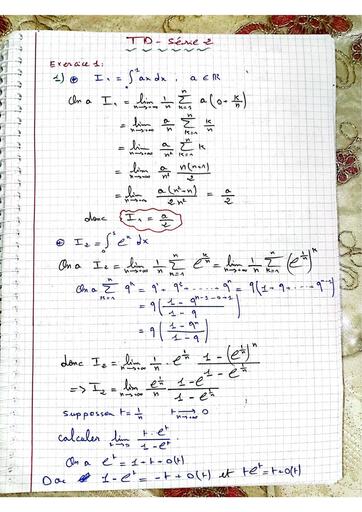 TD - Série 2
Exercice 1:
1) ⊛ I₁ = ∫₀¹ ax dx , a ∈ ℝ
On a I₁ = lim_{n→+∞} 1/n ∑_{k=1}^{n} a (0 + k/n)
= lim_{n→+∞} a/n ∑_{k=1}^{n} k/n
= lim_{n→+∞} a/n² ∑_{k=1}^{n} k
= lim_{n→+∞} a/n² n(n+1)/2
= lim_{n→+∞} a(n²+n)/2n² = a/2
donc I₁ = a/2
⊛ I₂ = ∫₀¹ eˣ dx
On a I₂ = lim_{n→+∞} 1/n ∑_{k=1}^{n} e^{k/n} = lim_{n→+∞} 1/n ∑_{k=1}^{n} (e^{1/n})^k
On a ∑_{k=1}^{n} q^k = q¹ + q² + ..... + qⁿ = q(1 + q + .... + q^{n-1})
= q((1 - q^{n-1-0+1})/(1 - q))
= q((1 - qⁿ)/(1 - q))
donc I₂ = lim_{n→+∞} 1/n . e^{1/n} (1 - (e^{1/n})ⁿ)/(1 - e^{1/n})
=> I₂ = lim_{n→+∞} e^{1/n}/n (1 - e)/(1 - e^{1/n})
supposson t = 1/n t →_{n→+∞} 0
calculer lim_{t→0} t . e^t/(1 - e^t)
On a e^t = 1 + t + o(t)
Donc 1 - e^t = -t + o(t) et te^t = t + o(t)